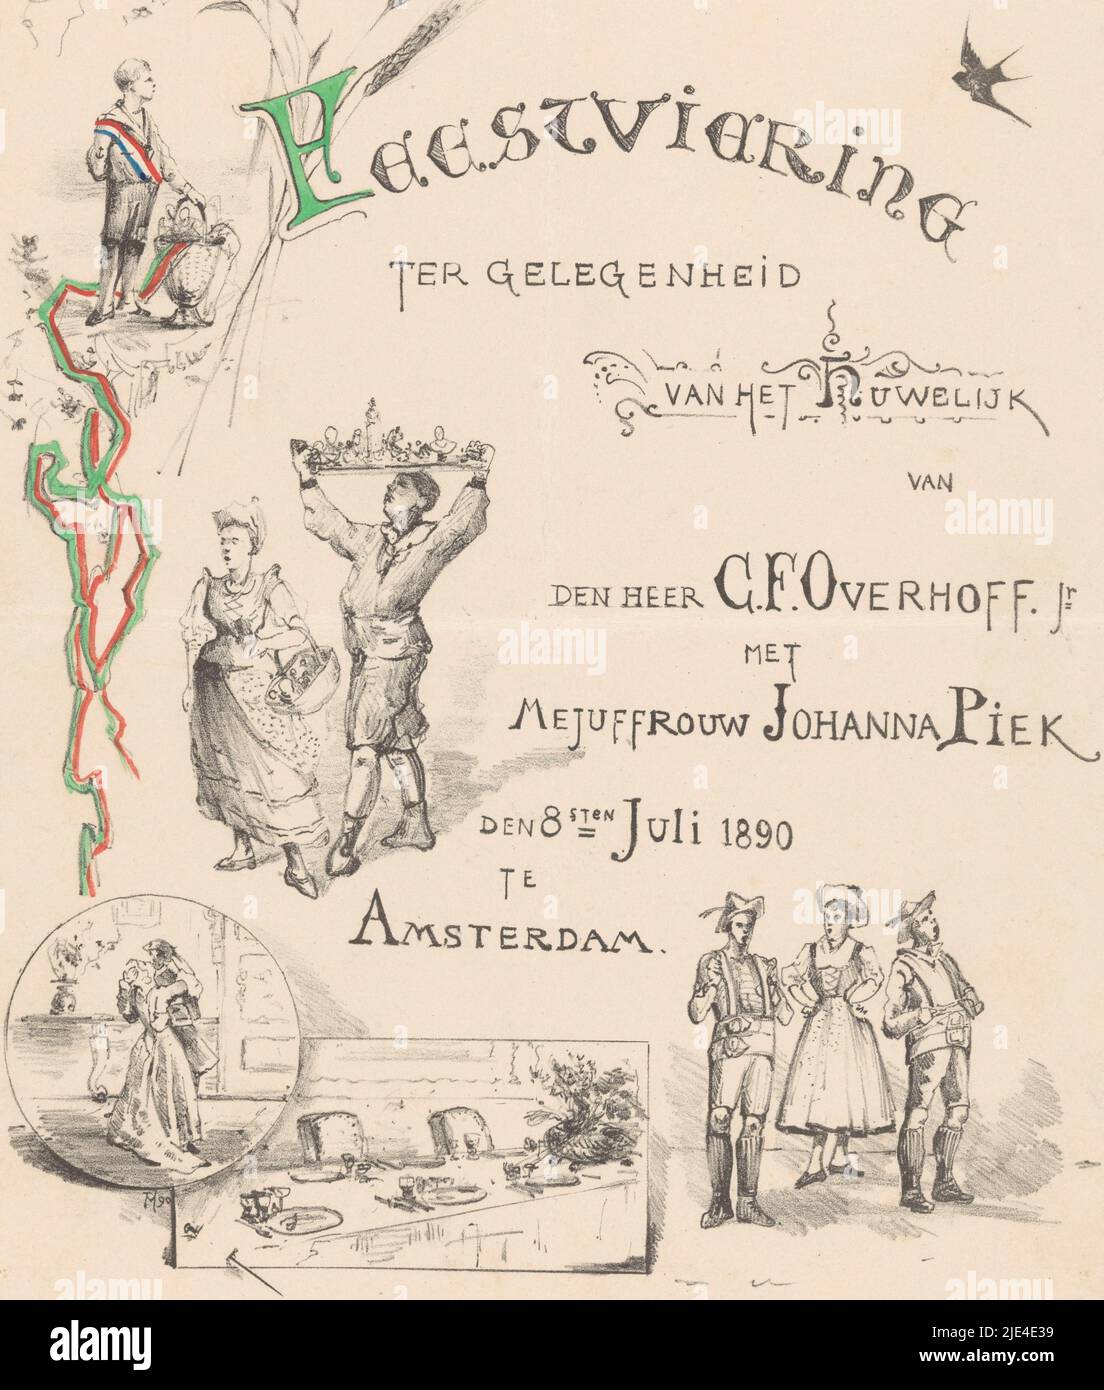 Feestviering
TER GELEGENHEID
VAN HET HUWELIJK
VAN
DEN HEER C.F. OVERHOFF. Jr
MET
MEJUFFROUW JOHANNA PIEK
DEN 8sten Juli 1890
TE
AMSTERDAM.
M90
alamy
alamy
Image ID: 2JE4E39
www.alamy.com